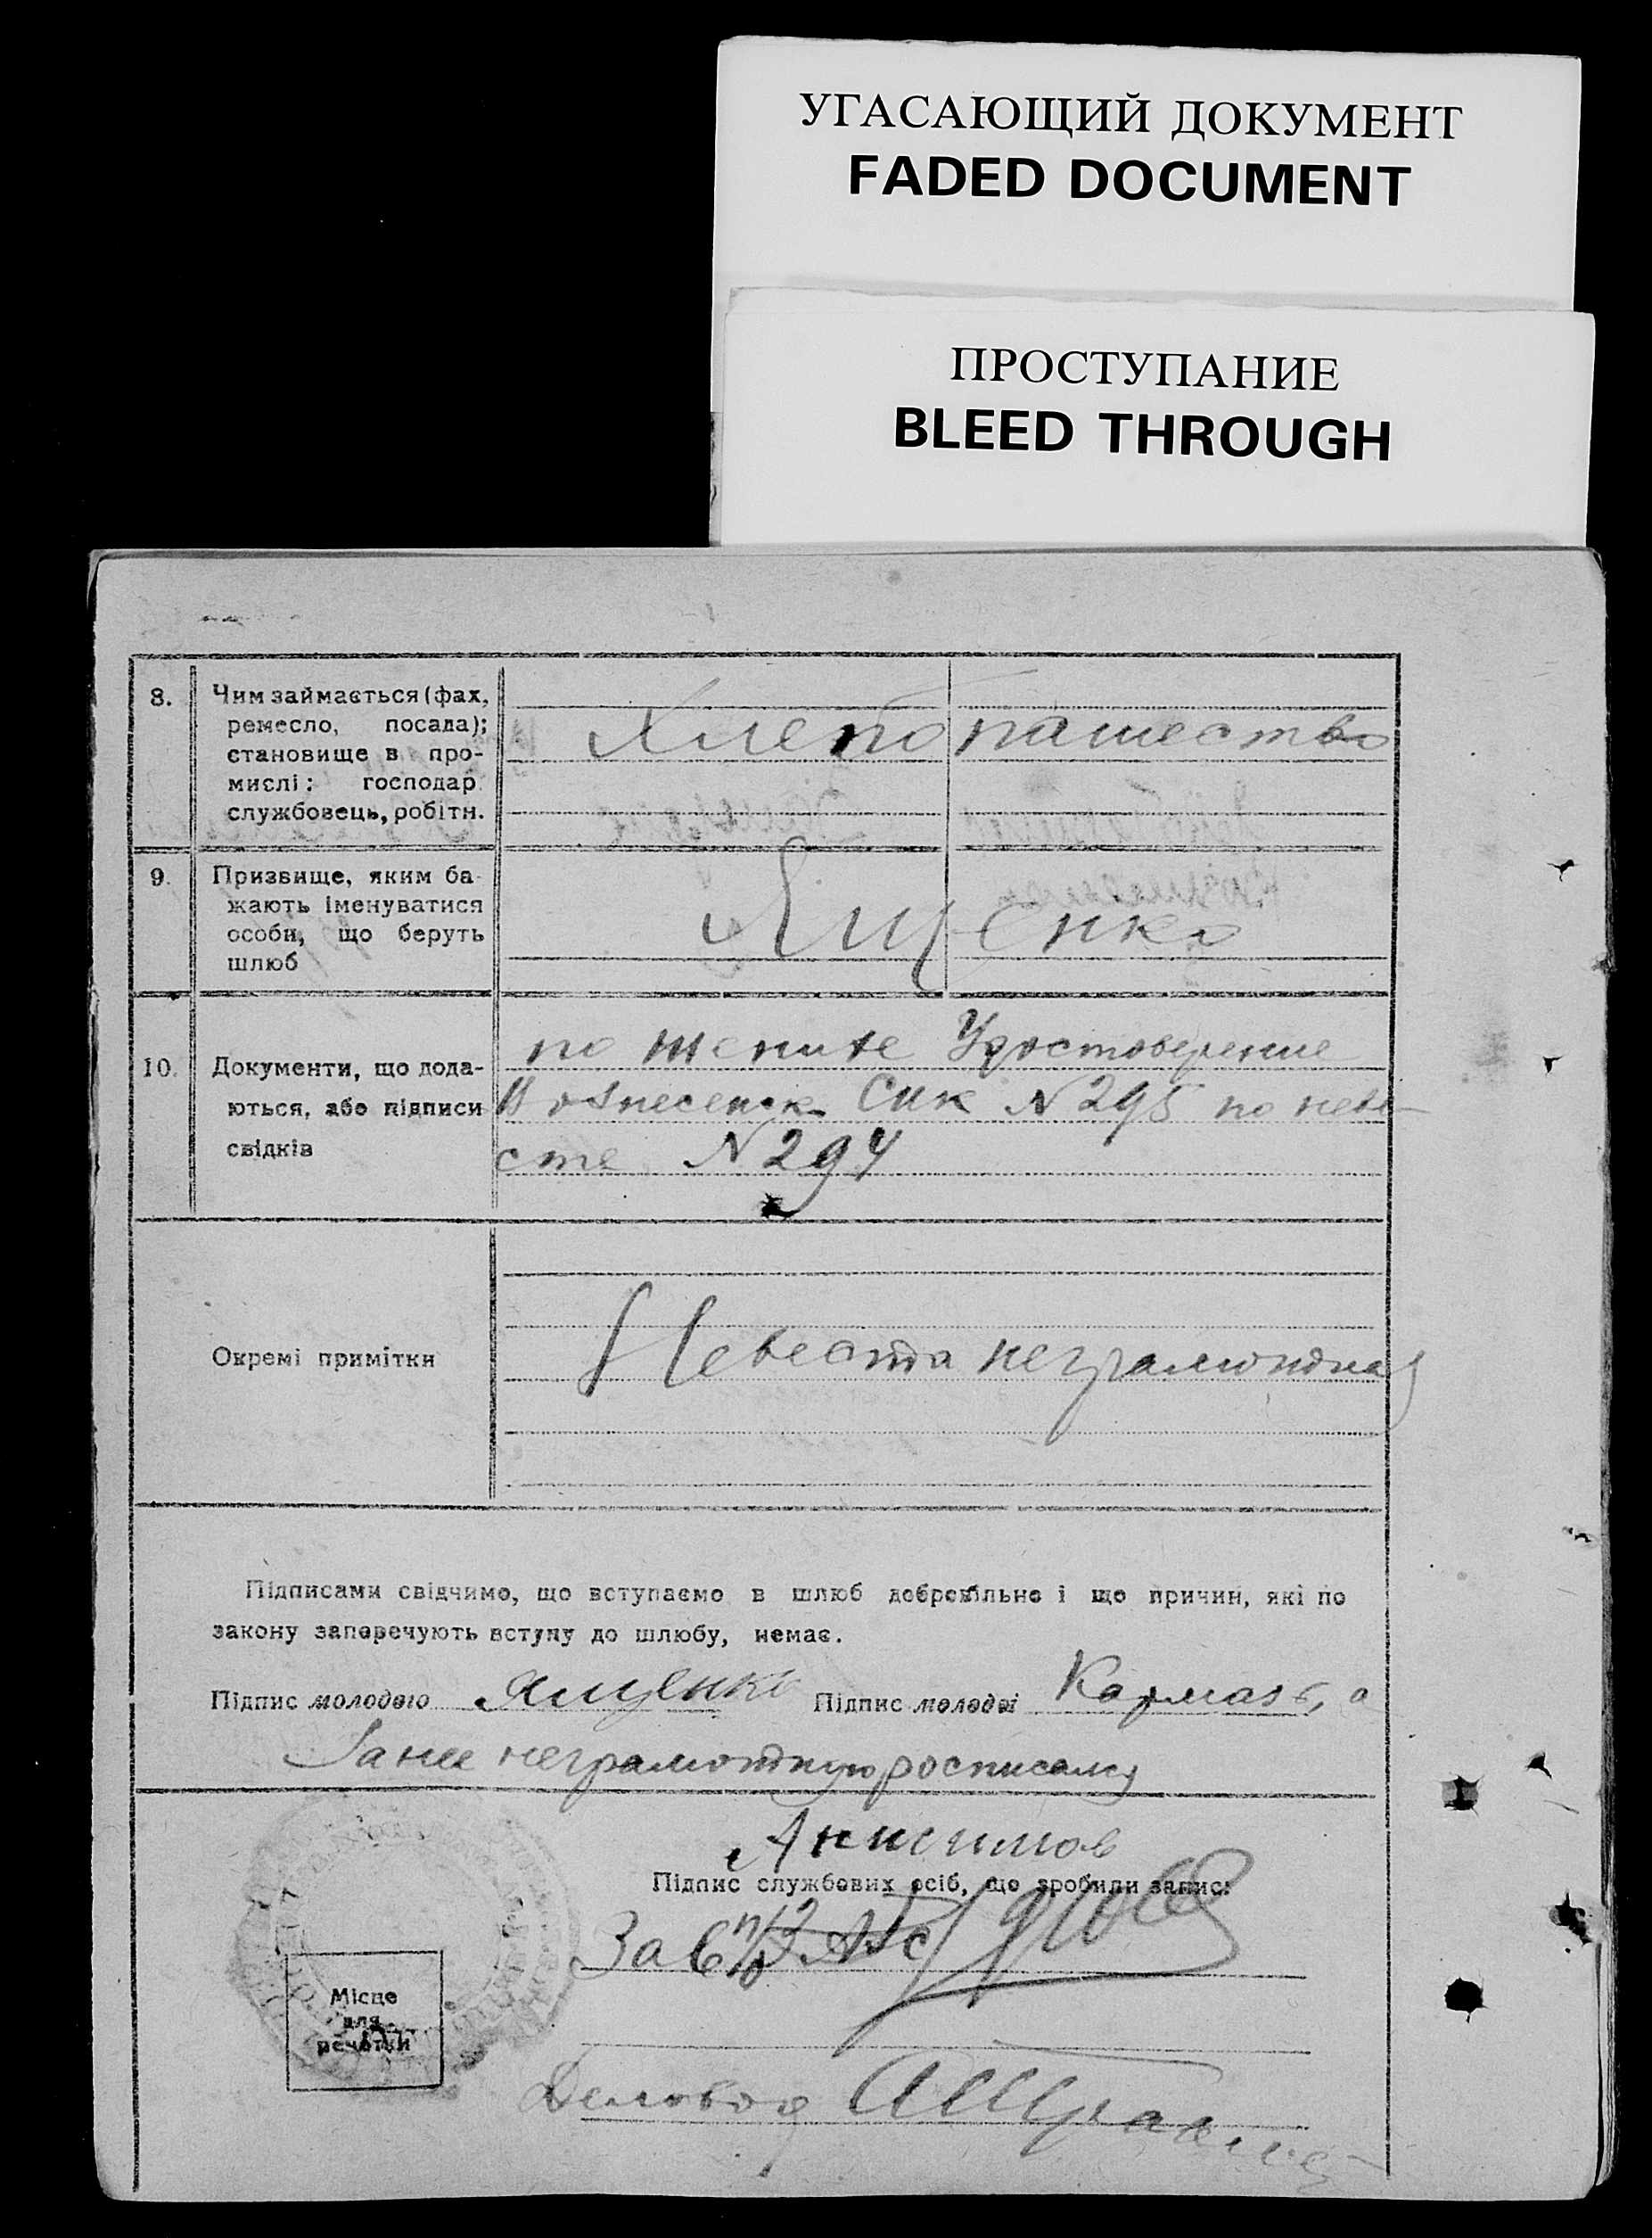 УГАСАЮЩИЙ ДОКУМЕНТ
FADED DOCUMENT
ПРОСТУПАНИЕ
BLEED THROUGH
8. Чим займається (фах,
ремесло, посада);
становище в про-
мислі: господар
службовець, робітн.
Хлебопашество
9. Призвище, яким ба-
жають іменуватися
особи, що беруть
шлюб
Ященко
10. Документи, що дода-
ються, або підписи
свідків
по женихе Удостоверение
Вознесенск. Сик N 295 по неве-
сте N 294
Окремі примітки
Невеста неграмотная
Підписами свідчимо, що вступаємо в шлюб добровільно і що причин, які по
закону заперечують вступу до шлюбу, немає.
Підпис молодого Ященко Підпис молодої Кармазь, а
За нее неграмотную росписался
Анисимов
Підпис службових осіб, що зробили запис:
Зав
Місце
для
печатки
Деловод